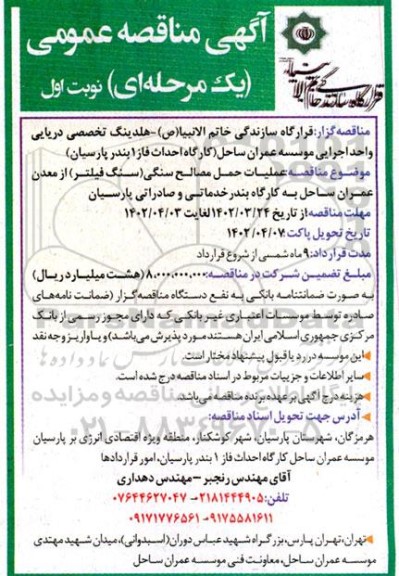 آگهی مناقصه عمومی
(یک مرحله‌ای) نوبت اول
قرارگاه سازندگی خاتم الانبیاء
مناقصه‌گزار: قرارگاه سازندگی خاتم الانبیا(ص) -هلدینگ تخصصی دریایی
واحد اجرایی موسسه عمران ساحل (کارگاه احداث فاز ۱ بندر پارسیان)
موضوع مناقصه: عملیات حمل مصالح سنگی (سنگ فیلتر) از معدن
عمران ساحل به کارگاه بندر خدماتی و صادراتی پارسیان
مهلت مناقصه: از تاریخ ۱۴۰۲/۰۳/۲۴ لغایت ۱۴۰۲/۰۴/۰۳
تاریخ تحویل پاکت: ۱۴۰۲/۰۴/۰۷
مدت قرارداد: ۹ ماه شمسی از شروع قرارداد
مبلغ تضمین شرکت در مناقصه: ۸.۰۰۰.۰۰۰.۰۰۰ (هشت میلیارد ریال)
به صورت ضمانتنامه بانکی به نفع دستگاه مناقصه گزار (ضمانت نامه‌های
صادره توسط موسسات اعتباری غیر بانکی که دارای مجوز رسمی از بانک
مرکزی جمهوری اسلامی ایران هستند مورد پذیرش می‌باشد) و یا واریز وجه نقد
این موسسه در رد یا قبول پیشنهاد مختار است.
سایر اطلاعات و جزییات مربوط در اسناد مناقصه درج شده است.
هزینه درج آگهی بر عهده برنده مناقصه می‌باشد.
آدرس جهت تحویل اسناد مناقصه:
هرمزگان، شهرستان پارسیان، شهر کوشکنار، منطقه ویژه اقتصادی انرژی بر پارسیان
موسسه عمران ساحل کارگاه احداث فاز ۱ بندر پارسیان، امور قراردادها
آقای مهندس رنجبر - مهندس دهداری
تلفن: ۰۲۱۸۱۴۴۴۹۰۵ - ۰۷۶۴۴۶۲۷۰۴۷
۰۹۱۷۵۵۸۱۶۱۱ - ۰۹۱۷۱۷۷۶۵۶۱
تهران، تهران پارس، بزرگراه شهید عباس دوران (اسبدوانی)، میدان شهید مهتدی
موسسه عمران ساحل، معاونت فنی موسسه عمران ساحل
۰۲۱-۸۸۳۴۹۶۷۰-۵